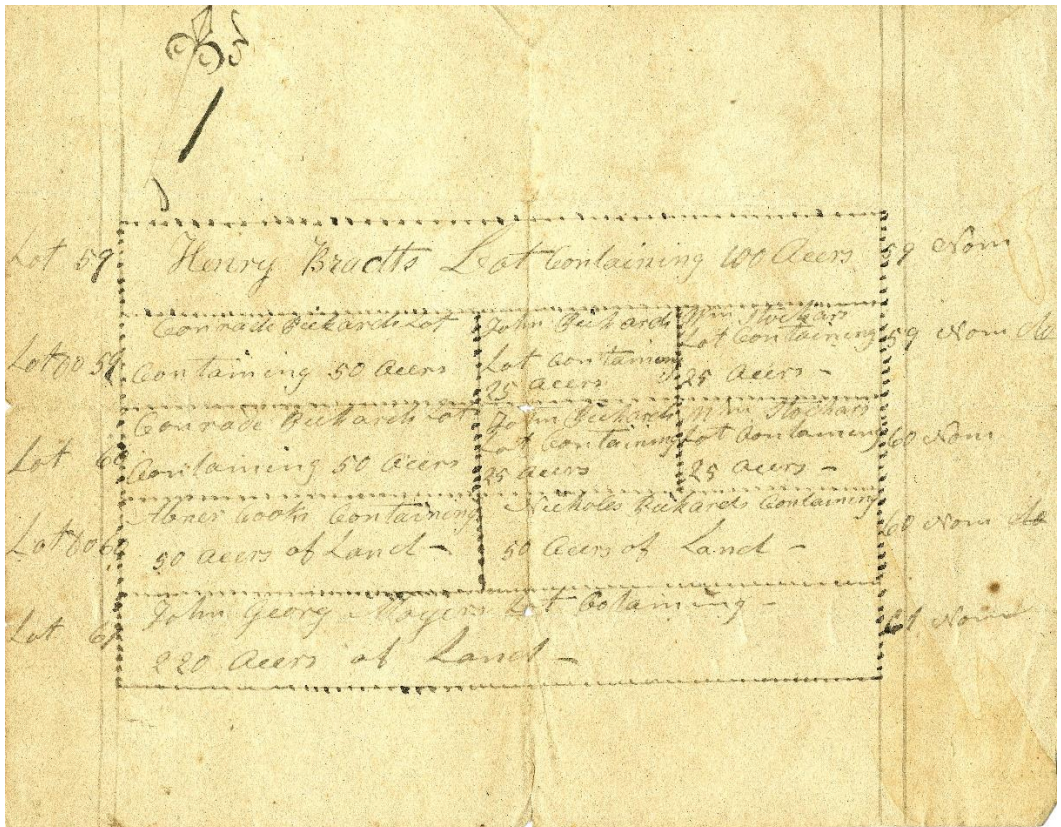 Lot 59
Henry Bradts Lot Containing 100 Acers
59 Nom
Lot Do 59
Conrade Beckards Lot
Containing 50 Acers
John Beckards
Lot Containing
25 Acers
Wm Stockars
Lot Containing
25 Acers -
59 Nom do
Lot 60
Conrade Beckards Lot
Containing 50 Acers
John Beckards
Lot Containing
25 Acers
Wm Stockars
Lot Containing
25 Acers -
60 Nom
Lot Do 60
Abner Cooks Containing
50 Acers of Land -
Nicholes Beckards Containing
50 Acers of Land -
60 Nom do
Lot 61
John Georg Mayers Lot Cotaining -
220 Acers of Land -
61 Nom